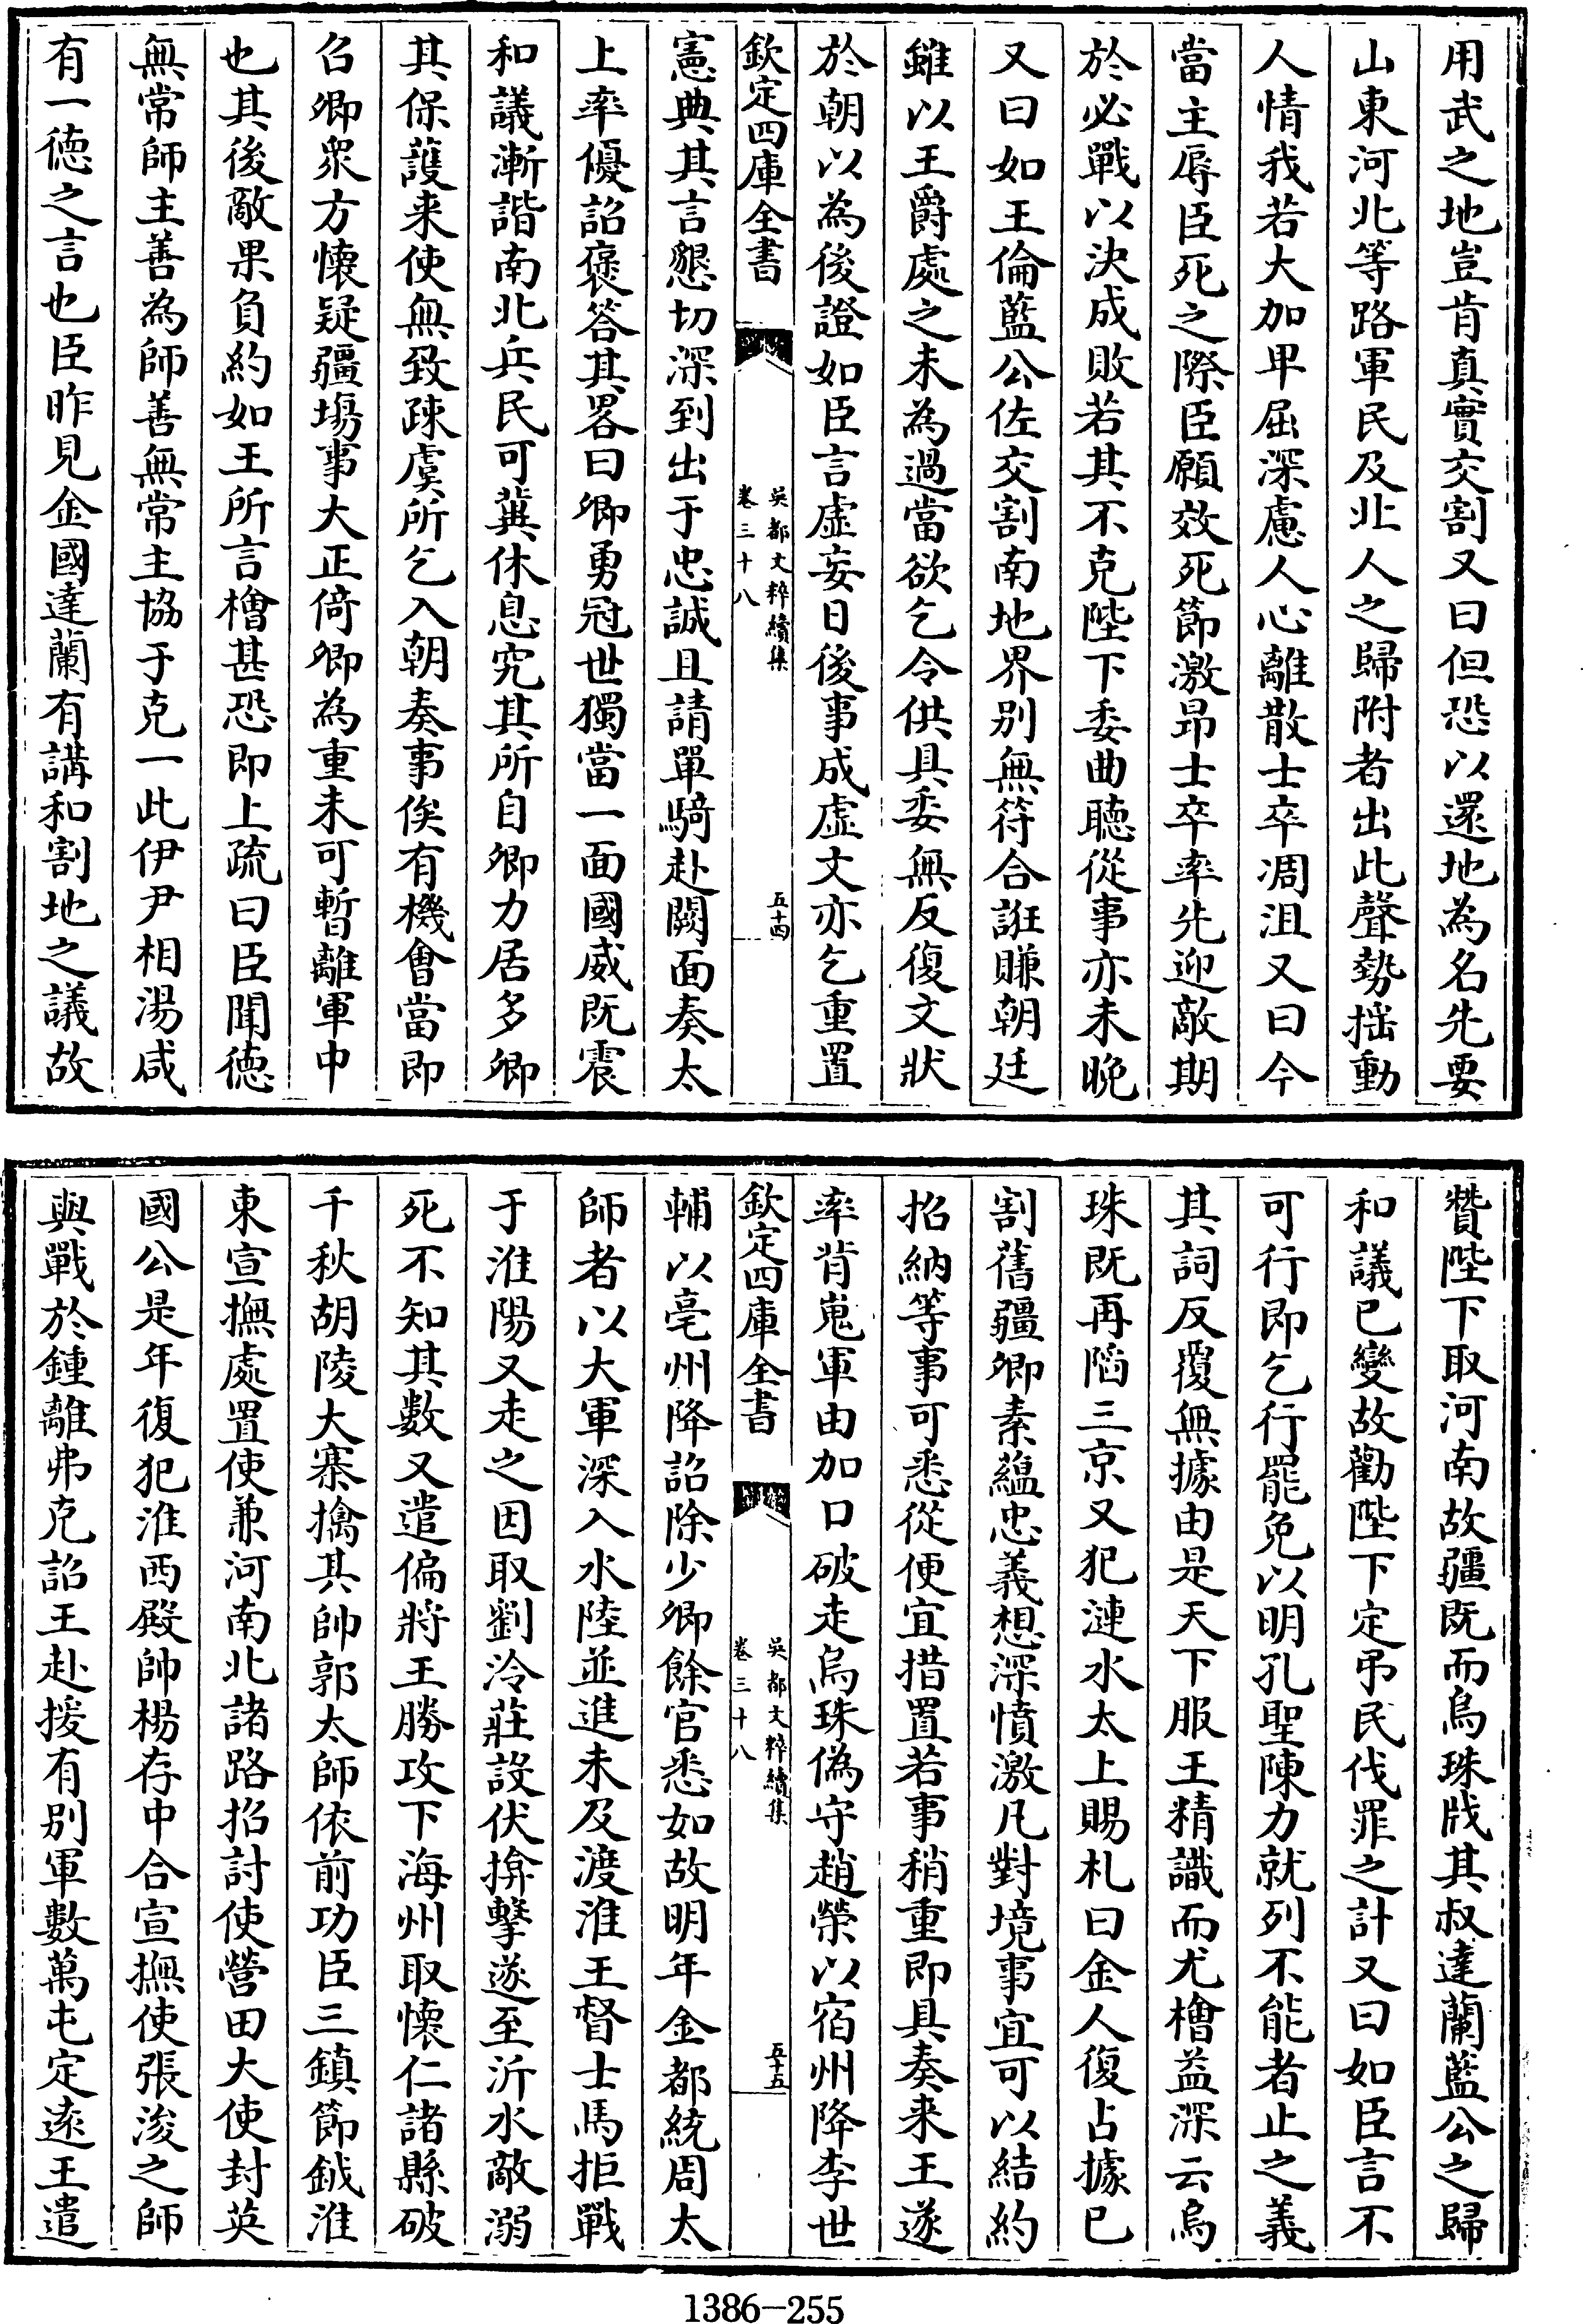 用武之地豈肯真實交割又曰但恐以還地為名先要
山東河北等路軍民及北人之歸附者出此聲勢揺動
人情我若大加卑屈深慮人心離散士卒凋沮又曰今
當主辱臣死之際臣願效死節激昂士卒率先迎敵期
於必戰以決成敗若其不克陛下委曲聽從事亦未晚
又曰如王倫藍公佐交割南地界别無符合誑賺朝廷
雖以王爵處之未為過當欲乞令供具委無反復文狀
於朝以為後證如臣言虚妄日後事成虚文亦乞重置
欽定四庫全書
吳都文粹續集
卷三十八
五十四
憲典其言懇切深到出于忠誠且請單騎赴闕面奏太
上率優詔褒答其畧曰卿勇冠世獨當一面國威既震
和議漸諧南北兵民可冀休息究其所自卿力居多卿
其保䕶来使無致疎虞所乞入朝奏事俟有機會當即
召卿衆方懷疑疆埸事大正倚卿為重未可暫離軍中
也其後敵果負約如王所言檜甚恐即上疏曰臣聞徳
無常師主善為師善無常主協于克一此伊尹相湯咸
有一徳之言也臣昨見金國達蘭有講和割地之議故
贊陛下取河南故疆既而烏珠戕其叔達蘭藍公之歸
和議已變故勸陛下定弔民伐罪之計又曰如臣言不
可行即乞行罷免以明孔聖陳力就列不能者止之義
其詞反覆無據由是天下服王精識而尤檜益深云烏
珠既再陷三京又犯漣水太上賜札曰金人復占據已
割舊疆卿素蘊忠義想深憤激凡對境事宜可以結約
招納等事可悉從便宜措置若事稍重即具奏来王遂
率背嵬軍由加口破走烏珠偽守趙榮以宿州降李世
欽定四庫全書
吳都文粹續集
卷三十八
五十五
輔以亳州降詔除少卿餘官悉如故明年金都統周太
師者以大軍深入水陸並進未及渡淮王督士馬拒戰
于淮陽又走之因取劉泠莊設伏掩擊遂至沂水敵溺
死不知其數又遣偏將王勝攻下海州取懷仁諸縣破
千秋胡陵大寨擒其帥郭太師依前功臣三鎮節鉞淮
東宣撫處置使兼河南北諸路招討使營田大使封英
國公是年復犯淮西殿帥楊存中合宣撫使張浚之師
與戰於鍾離弗克詔王赴援有别軍數萬屯定逺王遣
1386-255